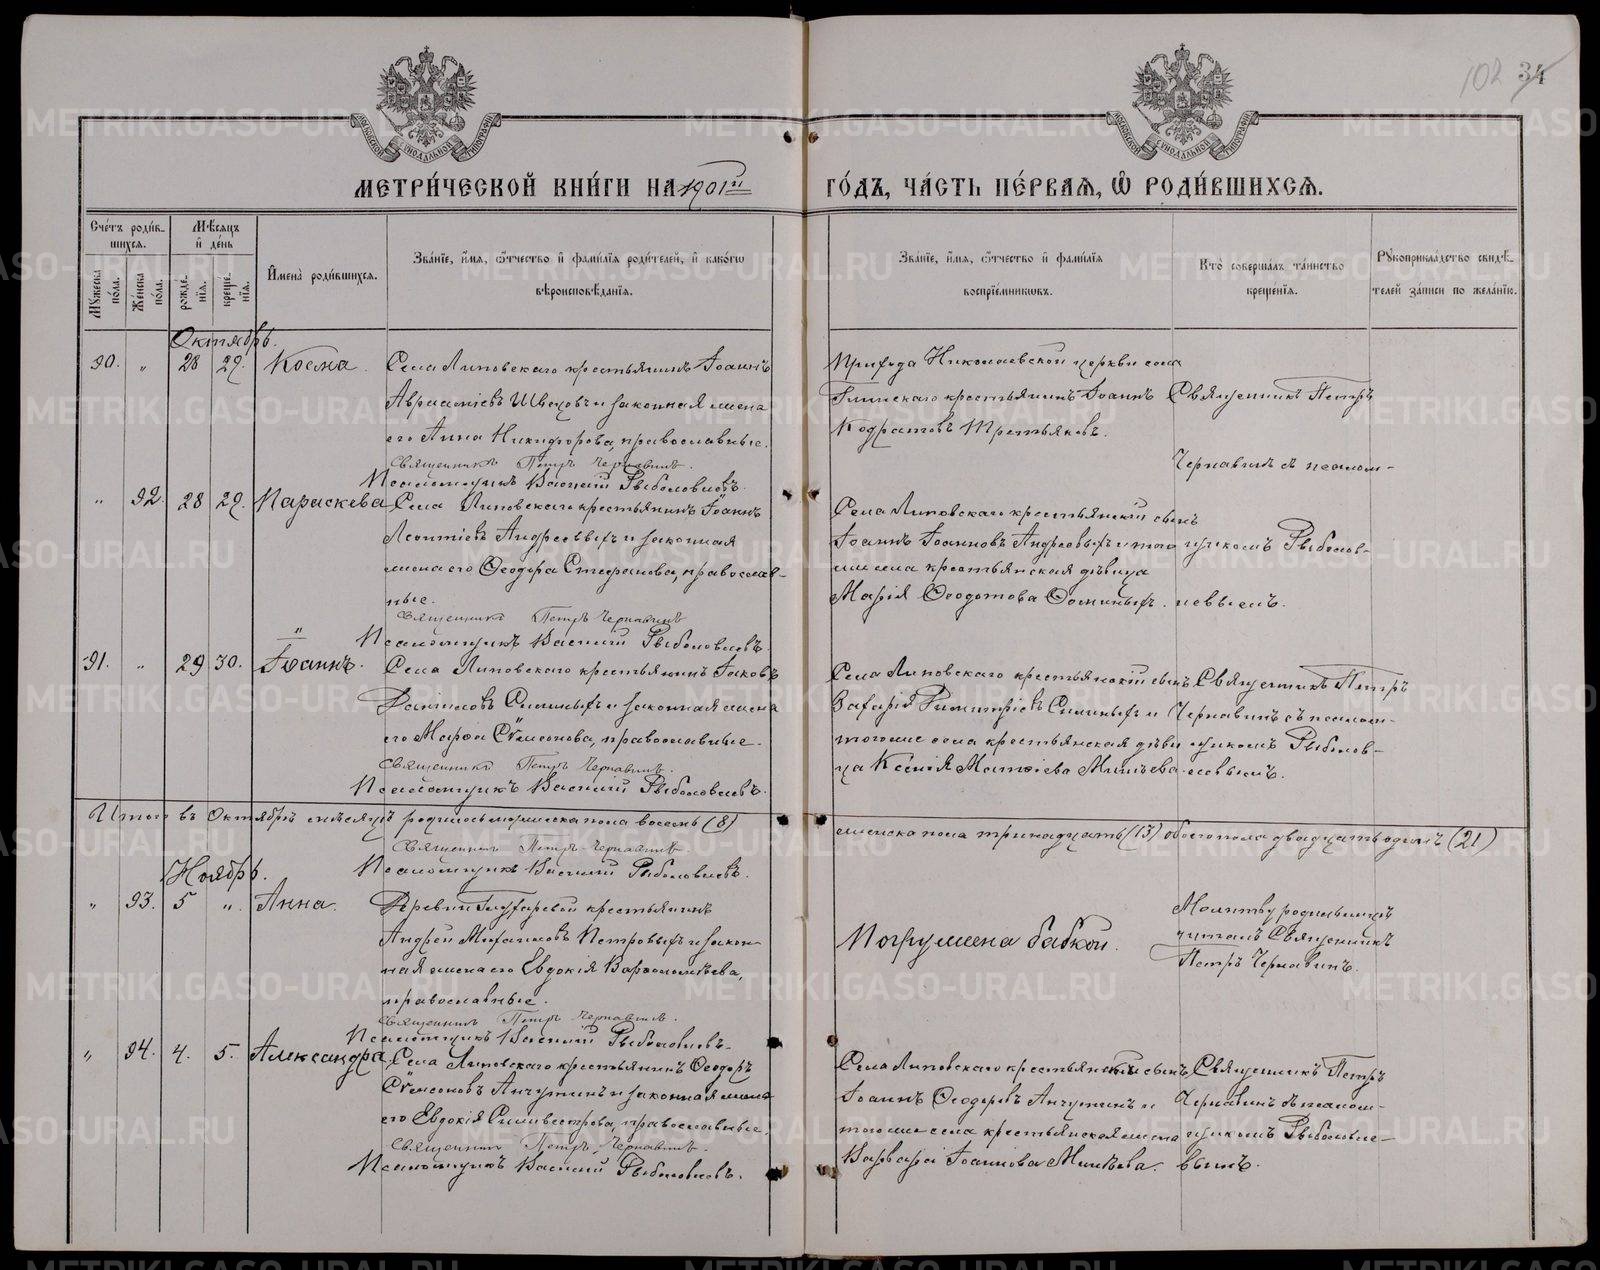 102 34
МЕТРИ́ЧЕСКОЙ КНИ́ГИ НА 1901й ГО́ДЪ, ЧА́СТЬ ПЕ́РВАЯ, Ѽ РОДИ́ВШИХСЯ.
Сче́тъ роди́вшихся.
Мꙋжеска по́ла.
Же́нска по́ла.
Мѣ́сяцъ и҆ де́нь
рожде́нїя.
креще́нїя.
И҆мена̀ роди́вшихся.
Зва́нїе, и҆́мя, ѻ҆́тчество и҆ фами́лїя роди́телей, и҆ како́гѡ
вѣроисповѣ́данїя.
Зва́нїе, и҆́мя, ѻ҆́тчество и҆ фами́лїя
воспрїе́мникѡвъ.
Кто̀ соверша́лъ та́инство
креще́нїя.
Рꙋкоприкла́дство свидѣ́-
телей за́писи по жела́нїю.
Октябрь.
90. „ 28 29. Косма.
Села Липовскаго крестьянинъ Іоаннъ
Авраамiевъ Швецовъ и законная жена
его Анна Никифорова, православные.
Священникъ Петръ Чернавинъ.
Псаломщикъ Василій Рыболовлевъ.
Прихода Николаевской церкви села
Глинскаго крестьянинъ Іоаннъ
Кодратовъ Третьяковъ.
Священникъ Петръ
Чернавинъ съ псалом-
щикомъ Рыболов-
левымъ.
„ 92. 28 29. Параскева
Села Липовскаго крестьянинъ Іоаннъ
Леонтіевъ Андреевыхъ и законная
жена его Ѳеодора Стефанова, православ-
ные.
Священникъ Петръ Чернавинъ
Псаломщикъ Василій Рыболовлевъ.
Села Липовскаго крестьянскій сынъ
Іоаннъ Іоанновъ Андреевыхъ и того
же села крестьянская дѣвица
Марія Ѳеодотова Ѳоминыхъ.
91. „ 29 30. Іоаннъ.
Села Липовскаго крестьянинъ Іаковъ
Даніиловъ Силиныхъ и законная жена
его Марѳа Сѵмеонова, православные.
Священникъ Петръ Чернавинъ.
Псаломщикъ Василій Рыболовлевъ.
Села Липовскаго крестьянскій сынъ
Захарій Димитріевъ Силиныхъ и
тогоже села крестьянская дѣви
ца Ксенія Матѳіева
Священникъ Петръ
Чернавинъ съ псалом-
щикомъ Рыболов-
левымъ.
Итого въ Октябрѣ мѣсяцѣ родилось мужеска пола восемь (8)
женска пола тринадцать (13) обоего пола двадцать одинъ (21)
Священникъ Петръ Чернавинъ.
Псаломщикъ Василій Рыболовлевъ.
Ноябрь.
„ 93. 5 „ Анна.
Деревни Глухаревой крестьянинъ
Андрей Михаиловъ Петровыхъ и закон-
ная жена его Евдокія Варѳоломѣева,
православные.
Священникъ Петръ Чернавинъ.
Псаломщикъ Василій Рыболовлевъ.
Погружена бабкой.
Молитву родильницѣ
читалъ Священникъ
Петръ Чернавинъ.
„ 94. 4. 5. Александра
Села Липовскаго крестьянинъ Ѳеодоръ
Сѵмеоновъ Анчутинъ и законная жена
его Евдокія Силивестрова, православные.
Священникъ Петръ Чернавинъ.
Псаломщикъ Василій Рыболовлевъ.
Села Липовскаго крестьянскій сынъ
Іоаннъ Ѳеодоровъ Анчутинъ и
тогоже села крестьянская жена
Варвара Іоаннова
Священникъ Петръ
Чернавинъ съ псалом-
щикомъ Рыболовле-
вымъ.
METRIKI.GASO-URAL.RU